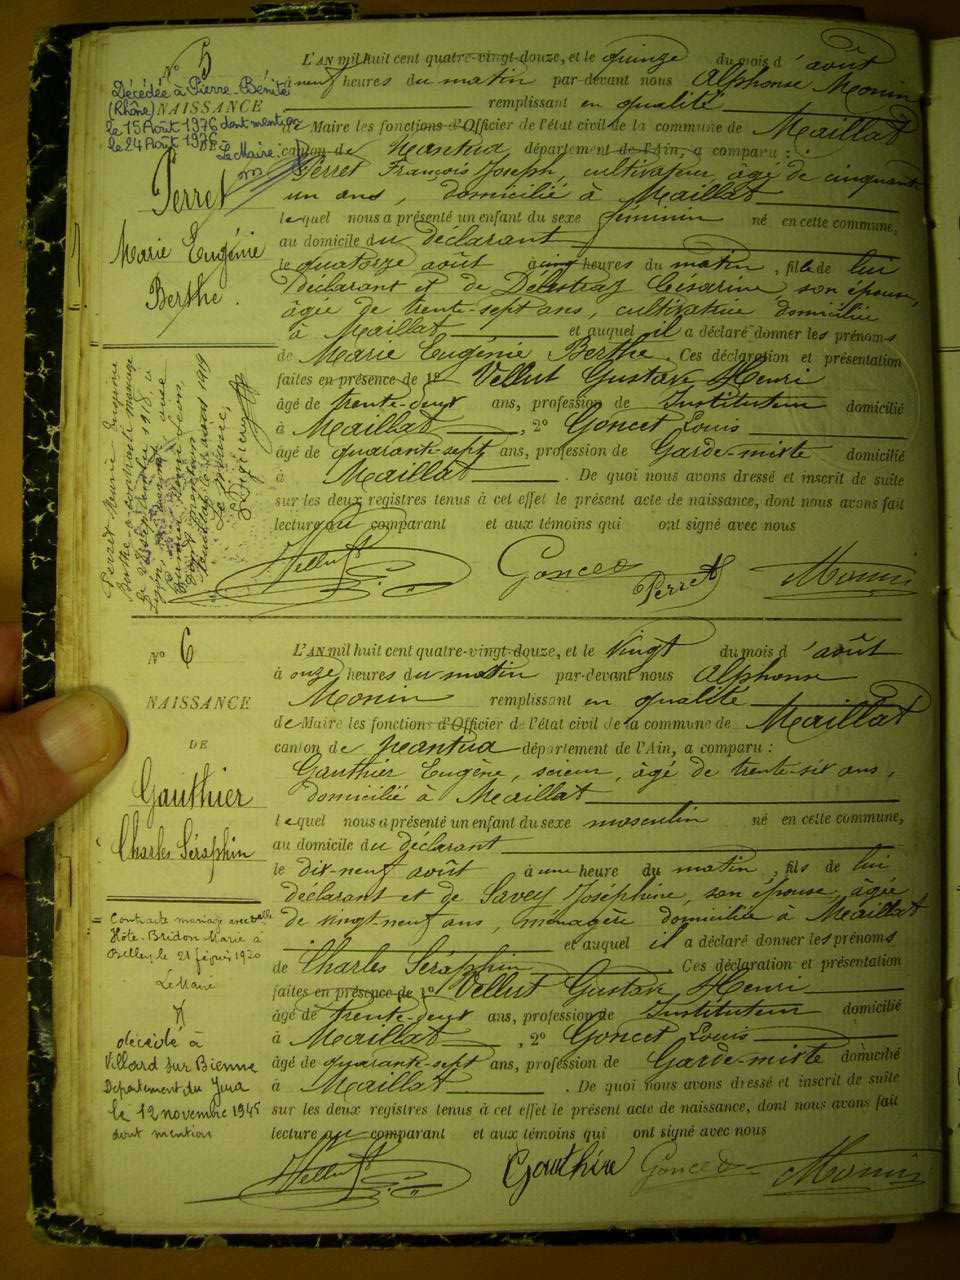 N° 5
Décédée à Pierre-Bénite
(Rhône)
NAISSANCE
le 15 Août 1976 dont mention
le 24 Août 1976
DE
Le Maire.
Perret
Marie Eugénie
Berthe.
L'AN mil huit cent quatre-vingt-douze, et le quinze du mois d'août
à neuf heures du matin par-devant nous Alphonse Monin
remplissant en qualité
de Maire les fonctions d'Officier de l'état civil de la commune de Maillat
canton de Nantua département de l'Ain, a comparu :
Perret François Joseph, cultivateur, âgé de cinquante
un ans, domicilié à Maillat
lequel nous a présenté un enfant du sexe féminin né en cette commune,
au domicile du déclarant
le quatorze août à cinq heures du matin, fille de lui
déclarant et de Delestraz Césarine son épouse,
âgée de trente-sept ans, cultivatrice domiciliée
à Maillat et auquel il a déclaré donner les prénoms
de Marie Eugénie Berthe. Ces déclaration et présentation
faites en présence de 1° Vellut Gustave Henri
âgé de trente-deux ans, profession de Instituteur domicilié
à Maillat, 2° Goncet Louis
âgé de quarante-sept ans, profession de Garde-mixte domicilié
à Maillat. De quoi nous avons dressé et inscrit de suite
sur les deux registres tenus à cet effet le présent acte de naissance, dont nous avons fait
lecture au comparant et aux témoins qui ont signé avec nous
Perret Marie Eugénie
Berthe a contracté mariage
Lyon
Le Maire,
Vellut Goncet Perret Monin
N° 6
NAISSANCE
DE
Gauthier
Charles Séraphin
L'AN mil huit cent quatre-vingt-douze, et le vingt du mois d'août
à onze heures du matin par-devant nous Alphonse
Monin remplissant en qualité
de Maire les fonctions d'Officier de l'état civil de la commune de Maillat
canton de Nantua département de l'Ain, a comparu :
Gauthier Eugène, scieur, âgé de trente-six ans,
domicilié à Maillat
lequel nous a présenté un enfant du sexe masculin né en cette commune,
au domicile du déclarant
le dix-neuf août à une heure du matin, fils de lui
déclarant et de Savey Joséphine, son épouse, âgée
de vingt-neuf ans, ménagère domiciliée à Maillat
et auquel il a déclaré donner les prénoms
de Charles Séraphin Ces déclaration et présentation
faites en présence de 1° Vellut Gustave Henri
âgé de trente-deux ans, profession de Instituteur domicilié
à Maillat, 2° Goncet Louis
âgé de quarante-sept ans, profession de Garde-mixte domicilié
à Maillat. De quoi nous avons dressé et inscrit de suite
sur les deux registres tenus à cet effet le présent acte de naissance, dont nous avons fait
lecture au comparant et aux témoins qui ont signé avec nous
Contracte mariage avec elle
Hôte-Bridon Marie à
Belley, le 21 février 1920
Le Maire
décédé à
Villard sur Bienne
Departement du Jura
le 12 novembre 1945
dont mention
Vellut Gauthier Goncet Monin